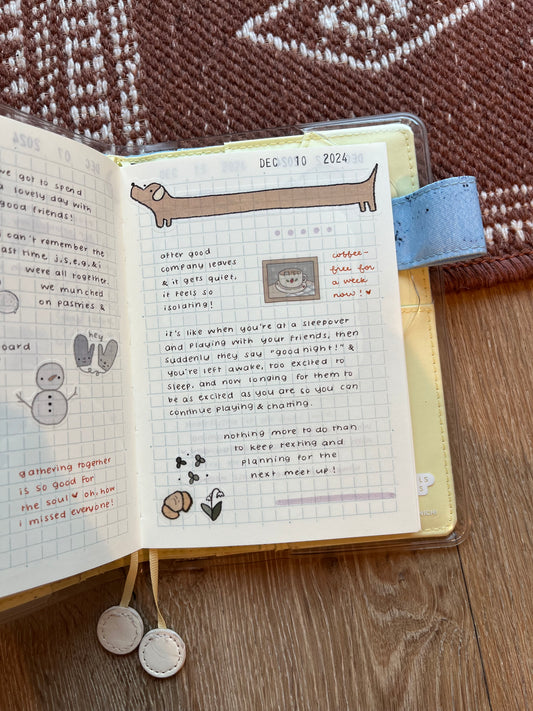 ve got to spend
a lovely day with
good friends!
can't remember the
last time j,s,e,g,&i
were all together.
we munched
on pastries &
hey
board
gathering together
is so good for
the soul ♥ oh, how
i missed everyone!
DEC 10 2024
after good
company leaves
& it gets quiet,
it feels so
isolating!
coffee-
free for
a week
now! ♥
it's like when you're at a sleepover
and playing with your friends, then
suddenly they say "good night!" &
you're left awake, too excited to
sleep, and now longing for them to
be as excited as you are so you can
continue playing & chatting.
nothing more to do than
to keep texting and
planning for the
next meet up!